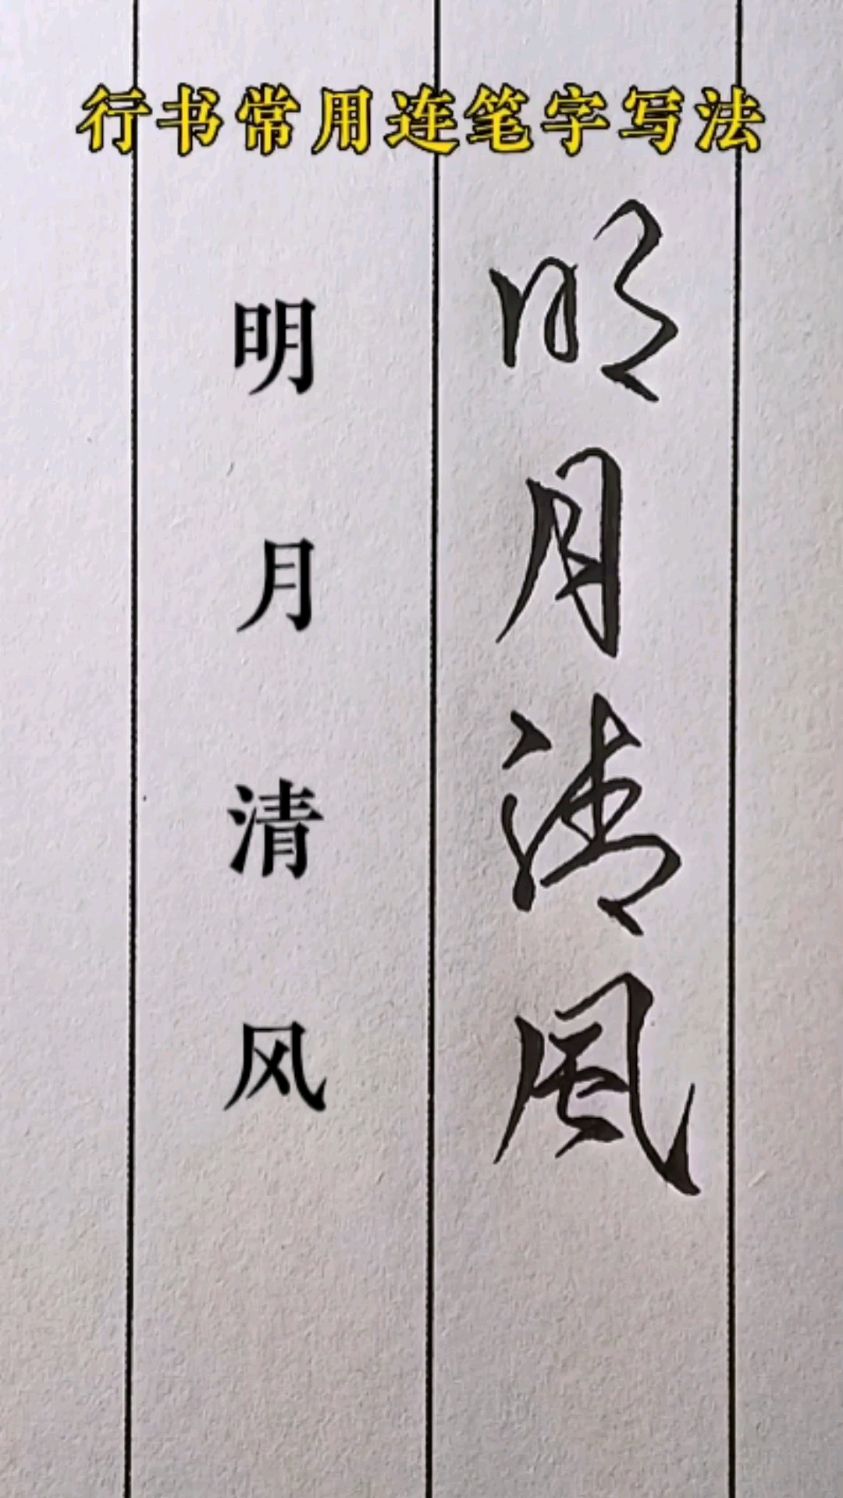 行书常用连笔字写法
明月清风
明月清風